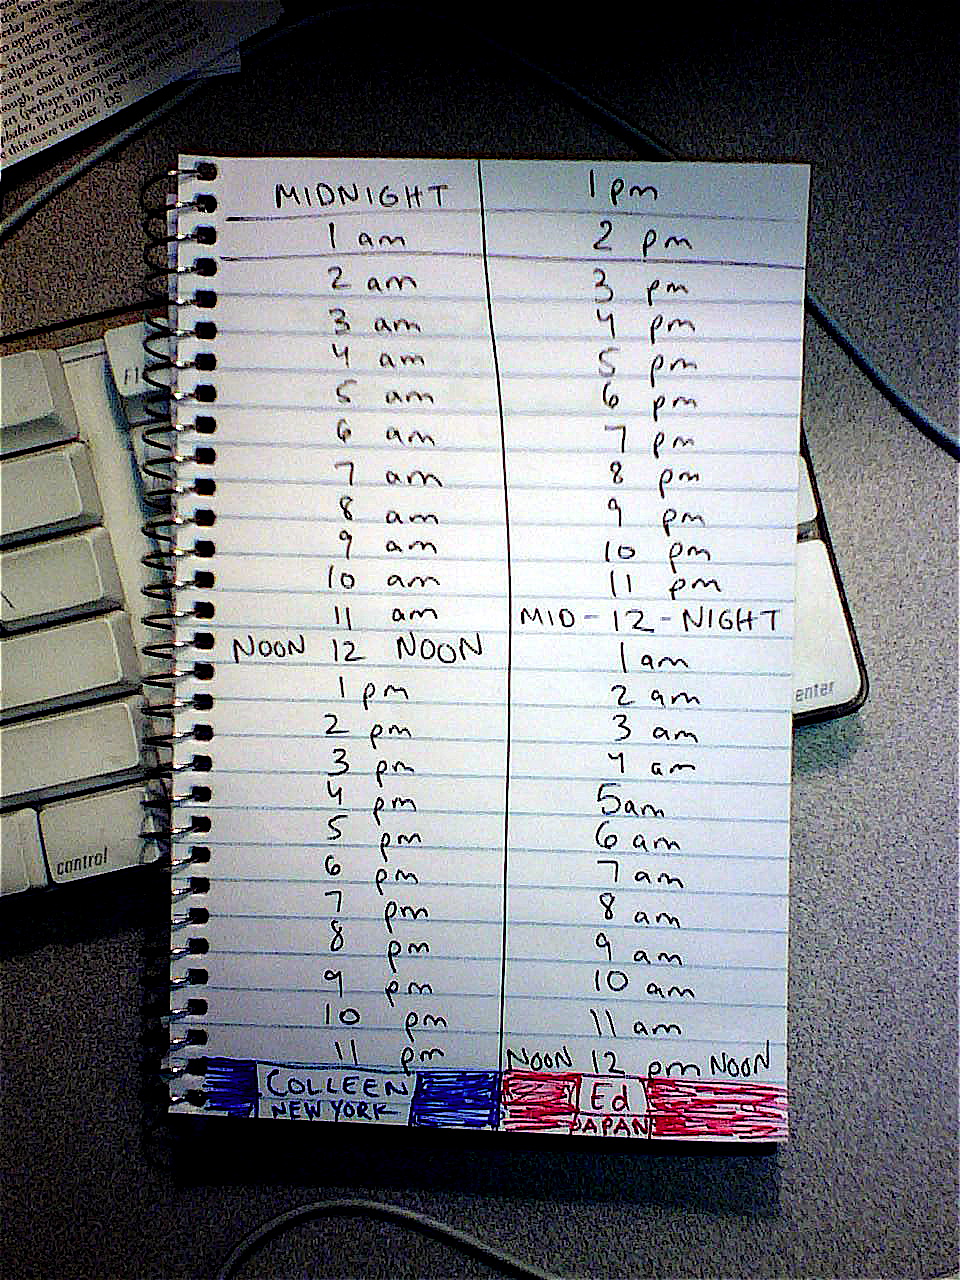 day with
opposite th
it's likely to
alphabet, it's less
even as that. The
though, could offer
ts (perhaps in conjunction
phabet, BCCB 9/07), and
e this suave traveler. DS
MIDNIGHT 1 pm
1 am 2 pm
2 am 3 pm
3 am 4 pm
4 am 5 pm
5 am 6 pm
6 am 7 pm
7 am 8 pm
8 am 9 pm
9 am 10 pm
10 am 11 pm
11 am MID-12-NIGHT
NOON 12 NOON 1 am
1 pm 2 am
2 pm 3 am
3 pm 4 am
4 pm 5am
5 pm 6 am
6 pm 7 am
7 pm 8 am
8 pm 9 am
9 pm 10 am
10 pm 11 am
11 pm NOON 12 pm NOON
COLLEEN Ed
NEW YORK JAPAN
F1
enter
control